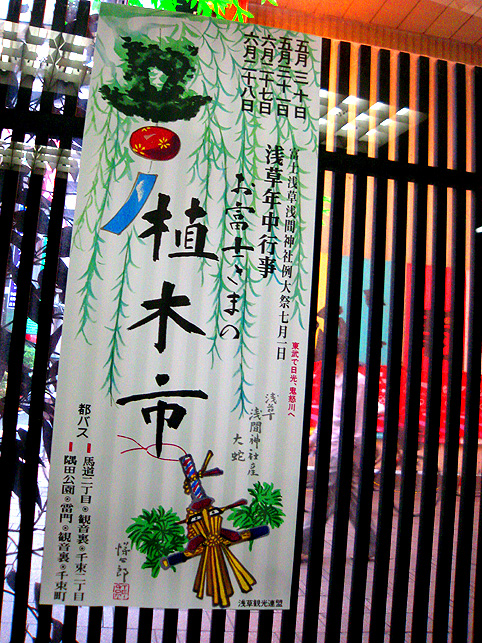 五月三十日
五月三十一日
六月二十七日
六月二十八日
富士浅草浅間神社例大祭七月一日
浅草年中行事
お富士さまの
植木市
東武で日光、鬼怒川へ
浅草
浅間神社産
大蛇
都バス
馬道二丁目◉観音裏◉千束二丁目
隅田公園◉雷門◉観音裏◉千束町
浅草観光連盟